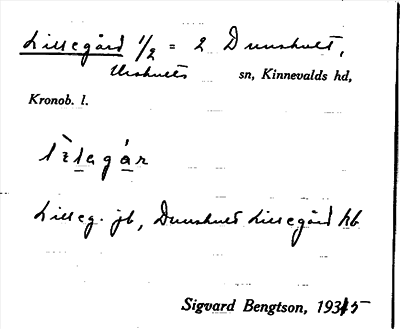 Lillegård 1/2 = 2 Dunshult,
Urshults sn, Kinnevalds hd,
Kronob. l.
Lilleg. jb, Dunshult Lillegård hb
Sigvard Bengtson, 1935